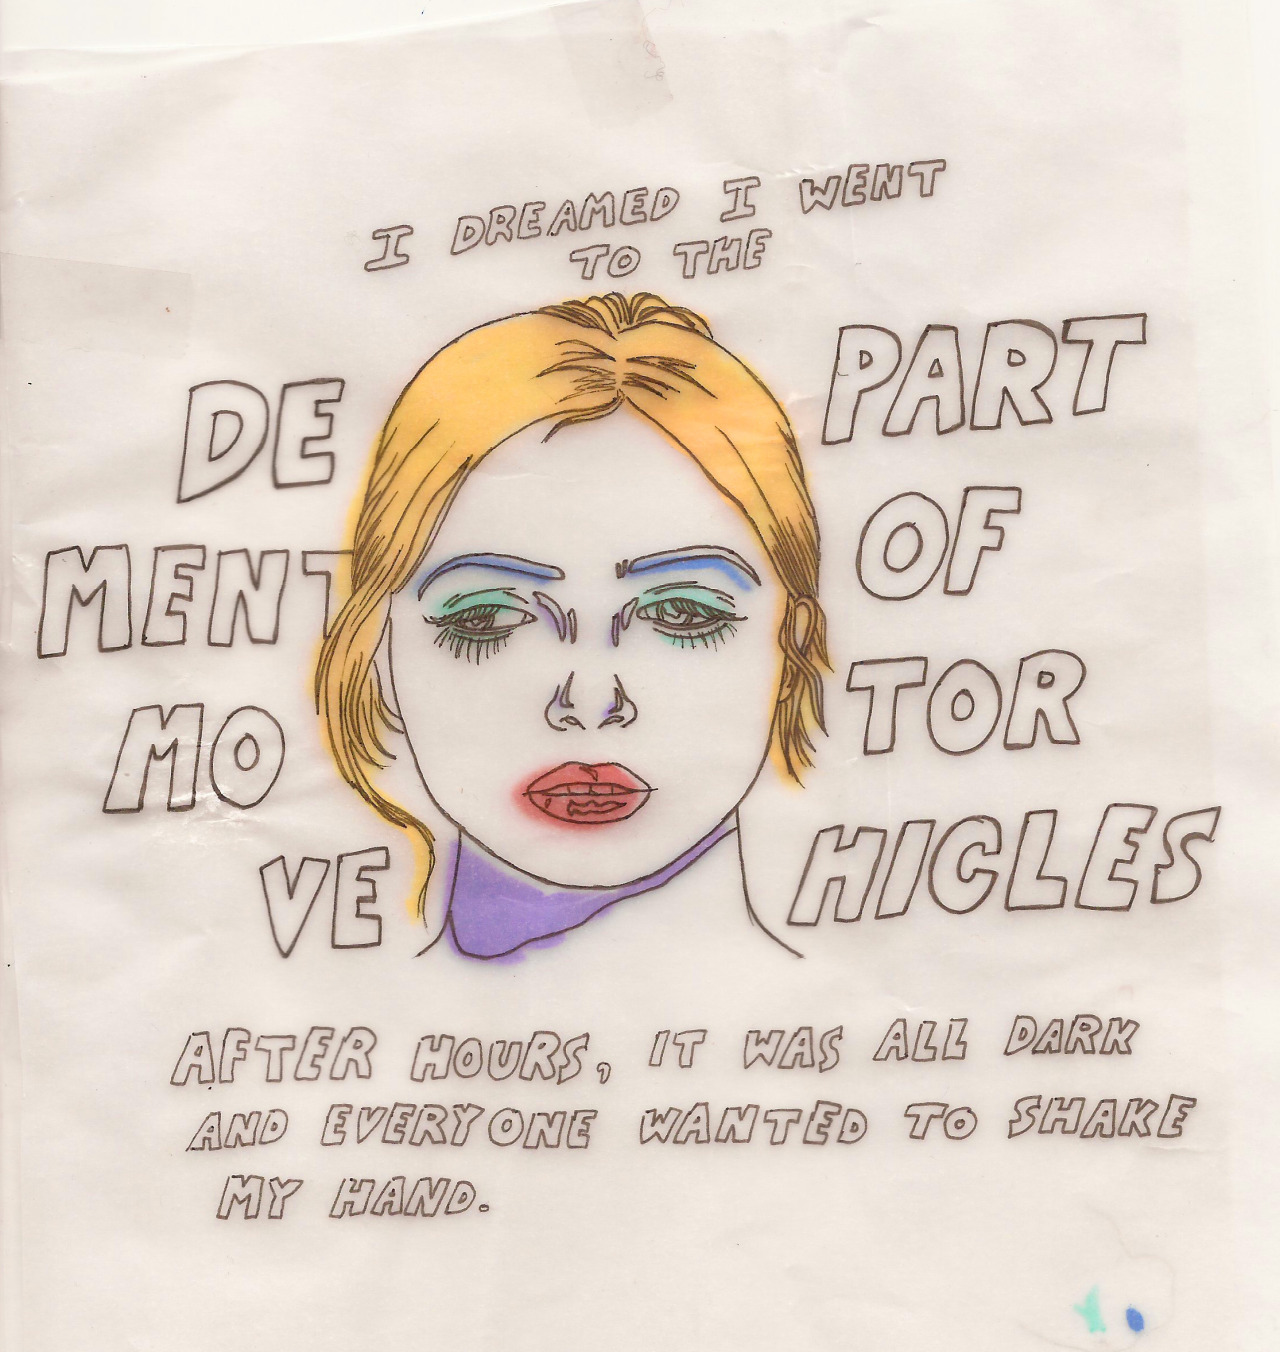 I DREAMED I WENT
TO THE
DE PART
MENT OF
MO TOR
VE HICLES
AFTER HOURS, IT WAS ALL DARK
AND EVERYONE WANTED TO SHAKE
MY HAND.